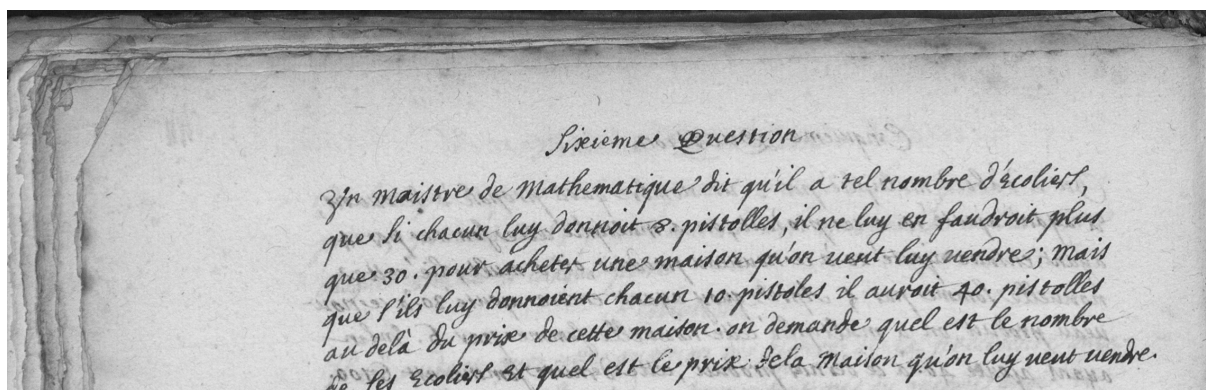 Sixieme Question
Un maistre de Mathematique dit qu'il a tel nombre d'Ecoliers,
que si chacun luy donnoit 8. pistolles, il ne luy en faudroit plus
que 30. pour acheter une maison qu'on veut luy vendre; mais
que s'ils luy donnoient chacun 10. pistoles il auroit 40. pistolles
au delà du prix de cette maison. on demande quel est le nombre
de ses Ecoliers et quel est le prix de la maison qu'on luy veut vendre.